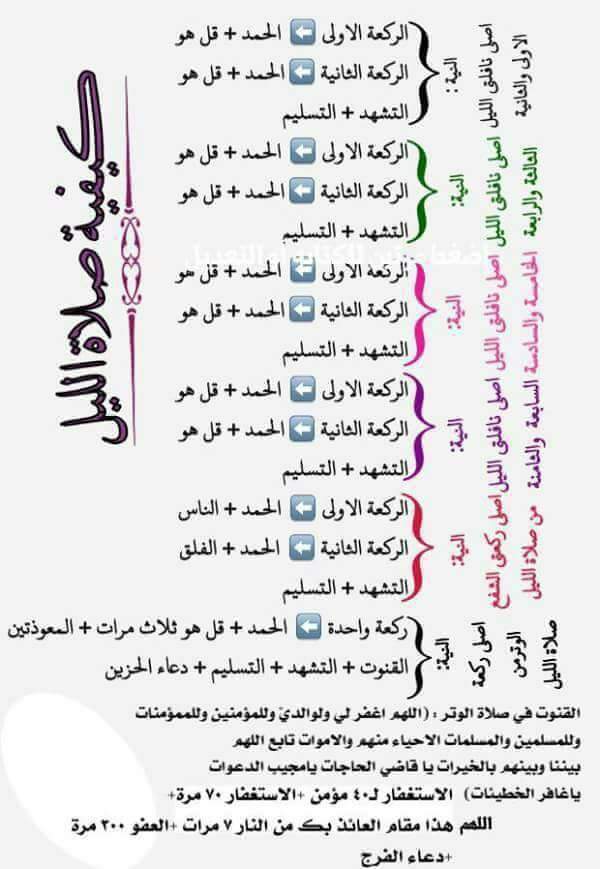 كيفية صلاة الليل
النية: اصلي نافلتي الليل الاولى والثانية
الركعة الاولى ⬅ الحمد + قل هو
الركعة الثانية ⬅ الحمد + قل هو
التشهد + التسليم
النية: اصلي نافلتي الليل الثالثة والرابعة
الركعة الاولى ⬅ الحمد + قل هو
الركعة الثانية ⬅ الحمد + قل هو
التشهد + التسليم
النية: اصلي نافلتي الليل الخامسة والسادسة
الركعة الاولى ⬅ الحمد + قل هو
الركعة الثانية ⬅ الحمد + قل هو
التشهد + التسليم
النية: اصلي نافلتي الليل السابعة والثامنة
الركعة الاولى ⬅ الحمد + قل هو
الركعة الثانية ⬅ الحمد + قل هو
التشهد + التسليم
النية: اصلي ركعتي الشفع من صلاة الليل
الركعة الاولى ⬅ الحمد + الناس
الركعة الثانية ⬅ الحمد + الفلق
التشهد + التسليم
النية: اصلي ركعة الوتر من صلاة الليل
ركعة واحدة ⬅ الحمد + قل هو ثلاث مرات + المعوذتين
القنوت + التشهد + التسليم + دعاء الحزين
القنوت في صلاة الوتر : (اللهم اغفر لي ولوالديّ وللمؤمنين وللمؤمنات
وللمسلمين والمسلمات الاحياء منهم والاموات تابع اللهم
بيننا وبينهم بالخيرات يا قاضي الحاجات يامجيب الدعوات
ياغافر الخطيئات) الاستغفار لـ٤٠ مؤمن +الاستغفار ٧٠ مرة+
اللهم هذا مقام العائذ بك من النار ٧ مرات +العفو ٣٠٠ مرة
+دعاء الفرج